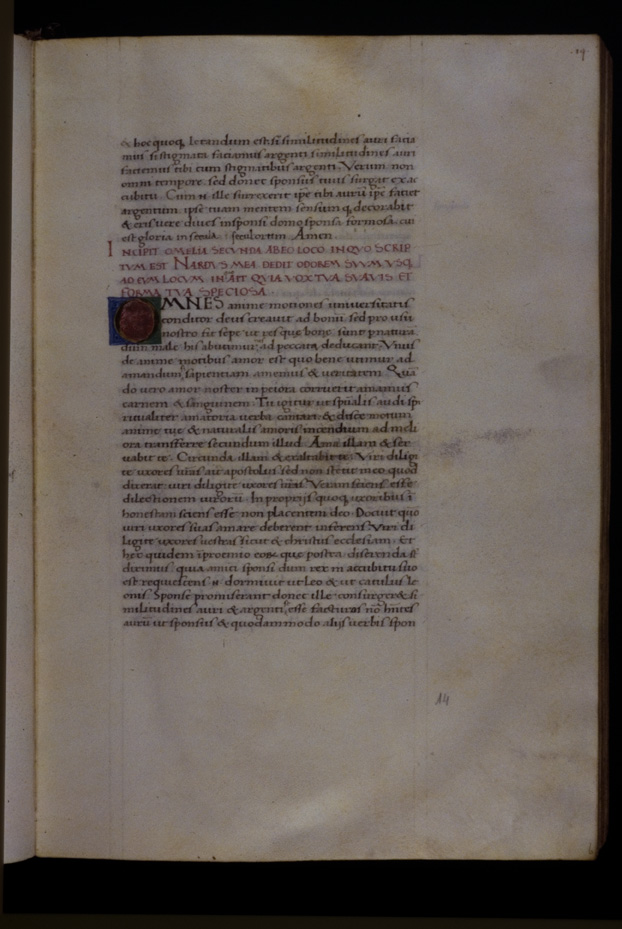 19
& hoc quoq, letandum est: si similitudines auri facia
mus si stigmata faciamus argenti similitudines auri
faciemus tibi cum stigmatibus argenti. Verum non
omni tempore. sed donec sponsus tuus surgat ex ac
cubitu. Cum .n. ille surrexerit ipe tibi aurū ipe faciet
argentum. ipse tuam mentem sensum q, decorabit
& eris uere diues in sponsi domo sponsa formosa. cui
est gloria in secula seculorum. Amen.
INCIPIT OMELIA SECVNDA AB EO LOCO. IN QVO SCRIP
TVM EST NARDVS MEA DEDIT ODOREM SVVM VSQ,
AD EVM LOCVM IN AIT QVIA VOX TVA SVAVIS ET
FORMA TVA SPECIOSA.
OMNES anime motiones uniuersitatis
conditor deus creauit ad bonū sed pro usu
nostro fit sepe ut res que bone sunt p naturā
dum male his abutimur ad peccata deducant. Vnus
de anime motibus amor est quo bene utimur ad
amandum sapientiam amemus & ueritatem. Quā
do uero amor noster in peiora corruerit amamus
carnem & sanguinem. Tu igitur ut spūalis audi spi
ritualiter amatoria uerba cantari: & disce motum
anime tue & naturalis amoris incendium ad meli
ora transferre secundum illud. Ama illam & ser
uabit te. Circunda illam & exaltabit te. Viri diligi
te uxores uras ait apostolus sed non stetit in eo quod
dixerat uiri diligite uxores uras. Verum sciens esse
dilectionem uirorū. In proprijs quoq, uxoribus ī
honestam sciens esse non placentem deo. Docuit quo
uiri uxores suas amare deberent inferens. Viri di
ligite uxores uestras sicut & christus ecclesiam. Et
hec quidem ī proemio eorum que postea discernenda
diximus. quia amici sponsi dum rex in accubitu suo
est requiescens .n. dormiuit ut Leo & ut catulus le
onis. Sponse promiserant donec ille consurgeret si
militudines auri & argenti esse facturos nō hntes
aurū ut sponsus & quodammodo alijs uerbis spon
14